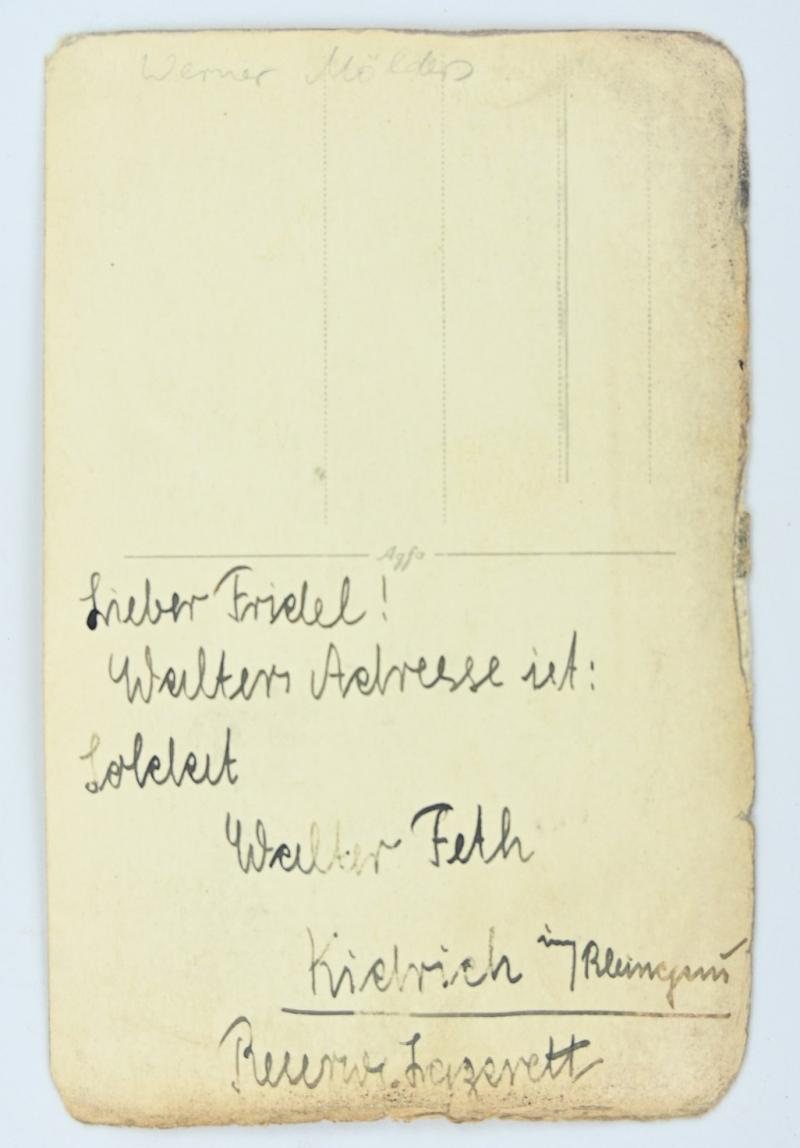 Werner Mölders
Agfa
Lieber Fridel!
Walters Adresse ist:
Soldat
Walter Feth
Kidrich im Rheingau
Reserve Lazarett